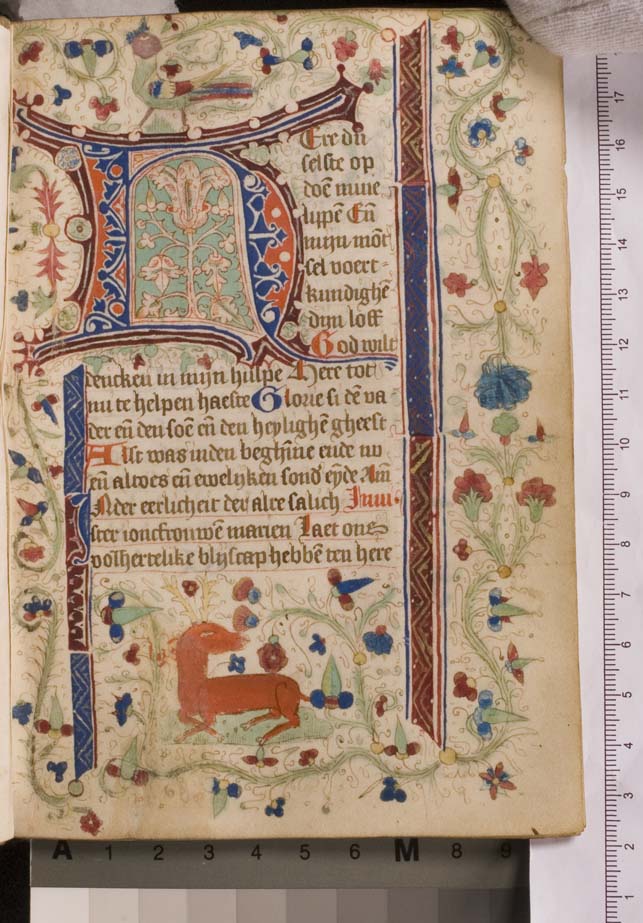 Ere du
selste op
doē mine
lippē Eñ
mijn mōt
sel voert
kundighē
dijn loff
God wilt
dencken in mijn hulpe Here tot
mi te helpen haeste Glorie si dē va
der eñ den soē eñ den heylighē gheest
Alst was inden beghīne ende nv
eñ altoes eñ ewelijken sond' eȳde Am̄
Ader eerlicheit der alre salich Inui
ster ioncfrouwē marien Laet ons
volhertelike blijscap hebbē ten here
17
16
15
14
13
12
11
10
9
8
7
6
5
4
3
2
1
A 1 2 3 4 5 6 M 8 9